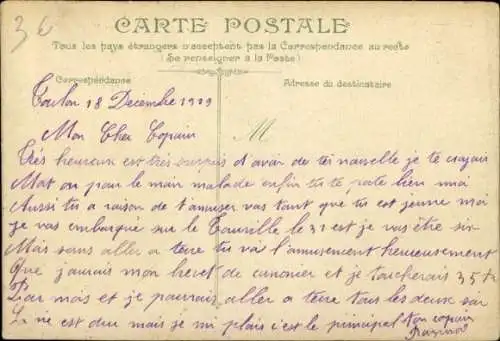 36
CARTE POSTALE
Tous les pays étrangers n'acceptent pas la Correspondance au recto
(Se renseigner à la Poste)
Correspondance
Adresse du destinataire
Toulon 18 Décembre 1909
Mon Cher Copain
M
Très heureux et très surpris d'avoir de tes nouvelle je te croyais
Mort ou pour le moin malade enfin tu te porte bien moi
Aussi tu a raison de t'amuser vas tant que tu est jeune moi
je vas embarqué sur le Tourville le 31 et je vas être six
Mois sans aller a terre tu va l'amusement heureusement
Que jaurais mon brevet de canonier et je toucherais 35 fr
Par mois et je pourrais aller a terre tous les deux soir
L ne est dur mais je mi plais c'est le principal Ton copain